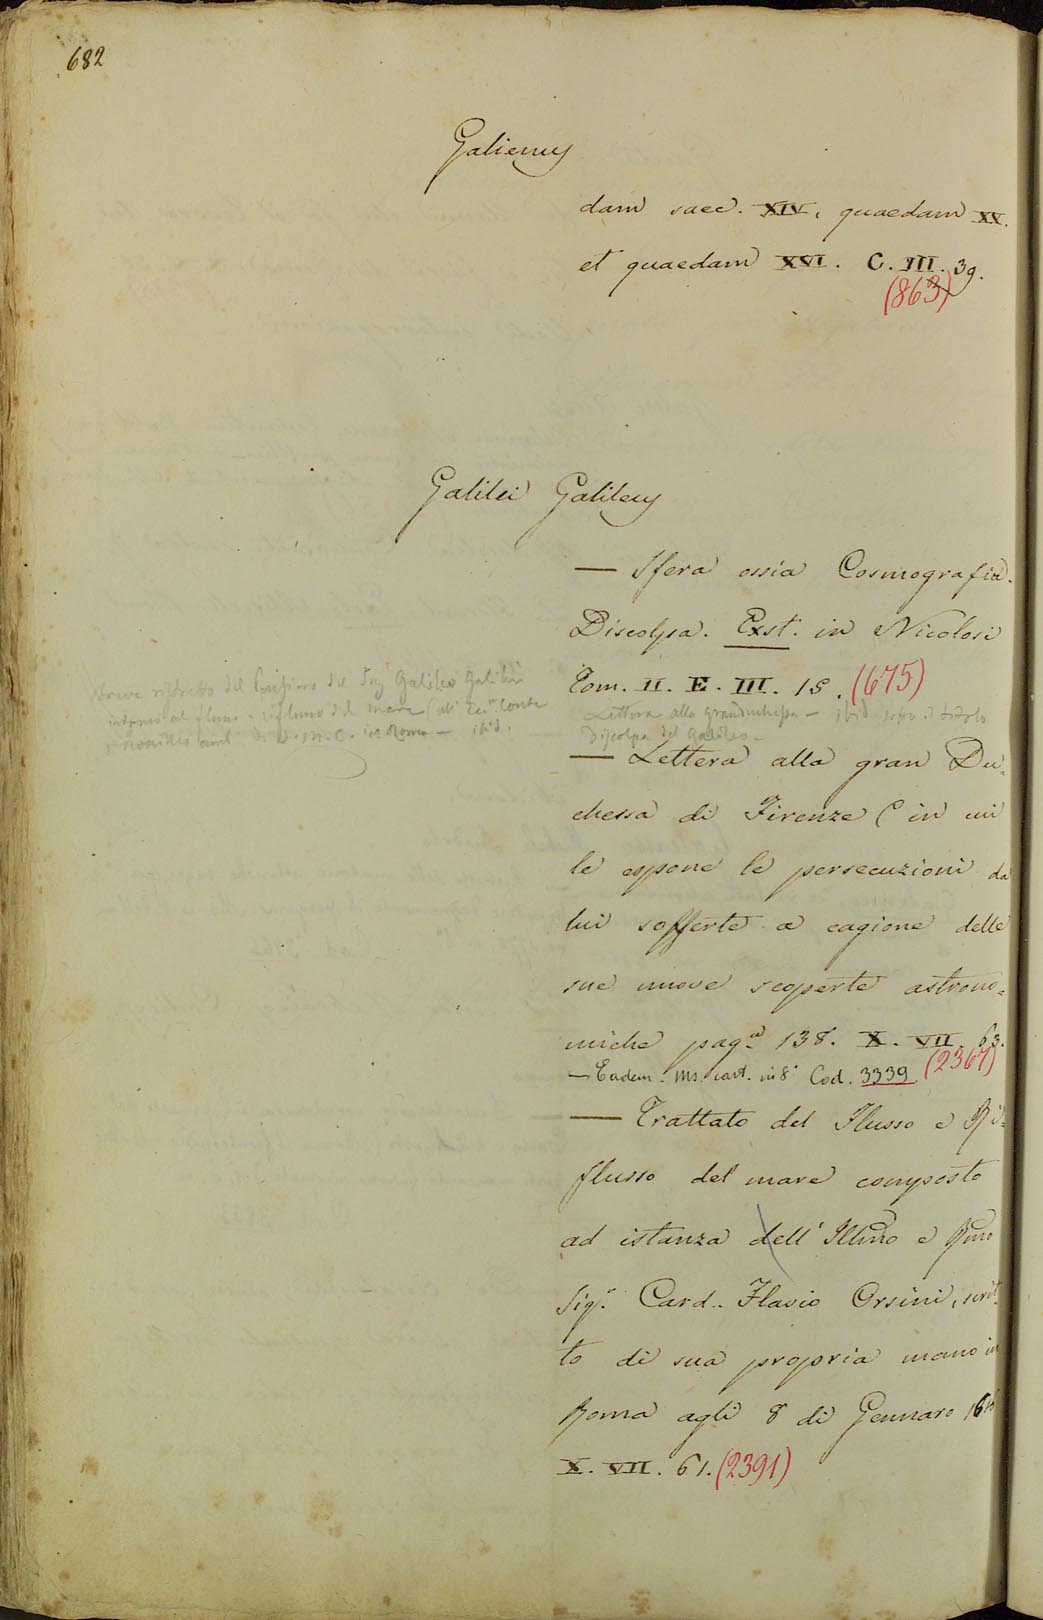 682
Galienus
dam saec. XIV, quaedam XV.
et quaedam XVI. C. III. 39.
(863)
Galilei Galileus
— Sfera ossia Cosmografia.
Discolpa. Exst. in Nicolosi
Tom. II. E. III. 15. (675)
Breve ristretto del Pensiero del Sig Galileo Galilei
intorno al flusso e riflusso del mare (all' Ecc. Conte
in Roma — ibid.
Lettera alla granduchessa — ibid. sotto il titolo
Discolpa del Galileo —
— Lettera alla gran Du=
chessa di Firenze (in cui
le espone le persecuzioni da
lui sofferte a cagione delle
sue nuove scoperte astrono=
miche pag.ª 138. X. VII. 63.
— Eadem. Ms. cart. in 8° Cod. 3339. (2367)
— Trattato del Flusso e Ri=
flusso del mare composto
ad istanza dell' Illmo e Rmo
Sigr. Card. Flavio Orsini, scrit=
to di sua propria mano in
Roma agli 8 di Gennaro 1616
X. VII. 61. (2391)